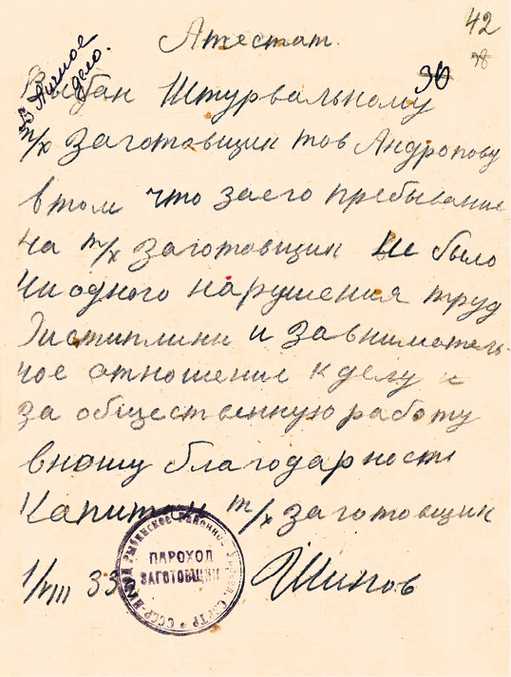 42
38
Аттестат.
30
В Личное
дело.
Выдан Штурвальному
т/х Заготовщик тов Андропову
в том что заего пребывание
на т/х Заготовщик не было
ниодного нарушения труд
дистиплини и завнимотель-
ное отношение к делу и
за общественную работу
вношу благодарность
Капитан т/х Заготовщик
1/VIII 33 Шипов
РЫБИНСКОЕ РАЙОННОЕ
ПАРОХОД
ЗАГОТОВЩИК